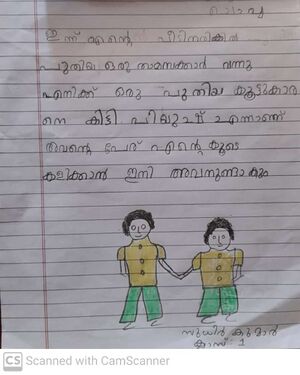 ഇന്ന് എന്റെ വീടിനരികിൽ
പുതിയ ഒരു താമസക്കാർ വന്നു
എനിക്ക് ഒരു പുതിയ കൂട്ടുകാര
നെ കിട്ടി എന്നാണ്
അവന്റെ പേര് എന്റെ കൂടെ
കളിക്കാൻ ഇനി അവനുണ്ടാകും
സുധീർ കുമാർ
ക്ലാസ് 1
CS Scanned with CamScanner